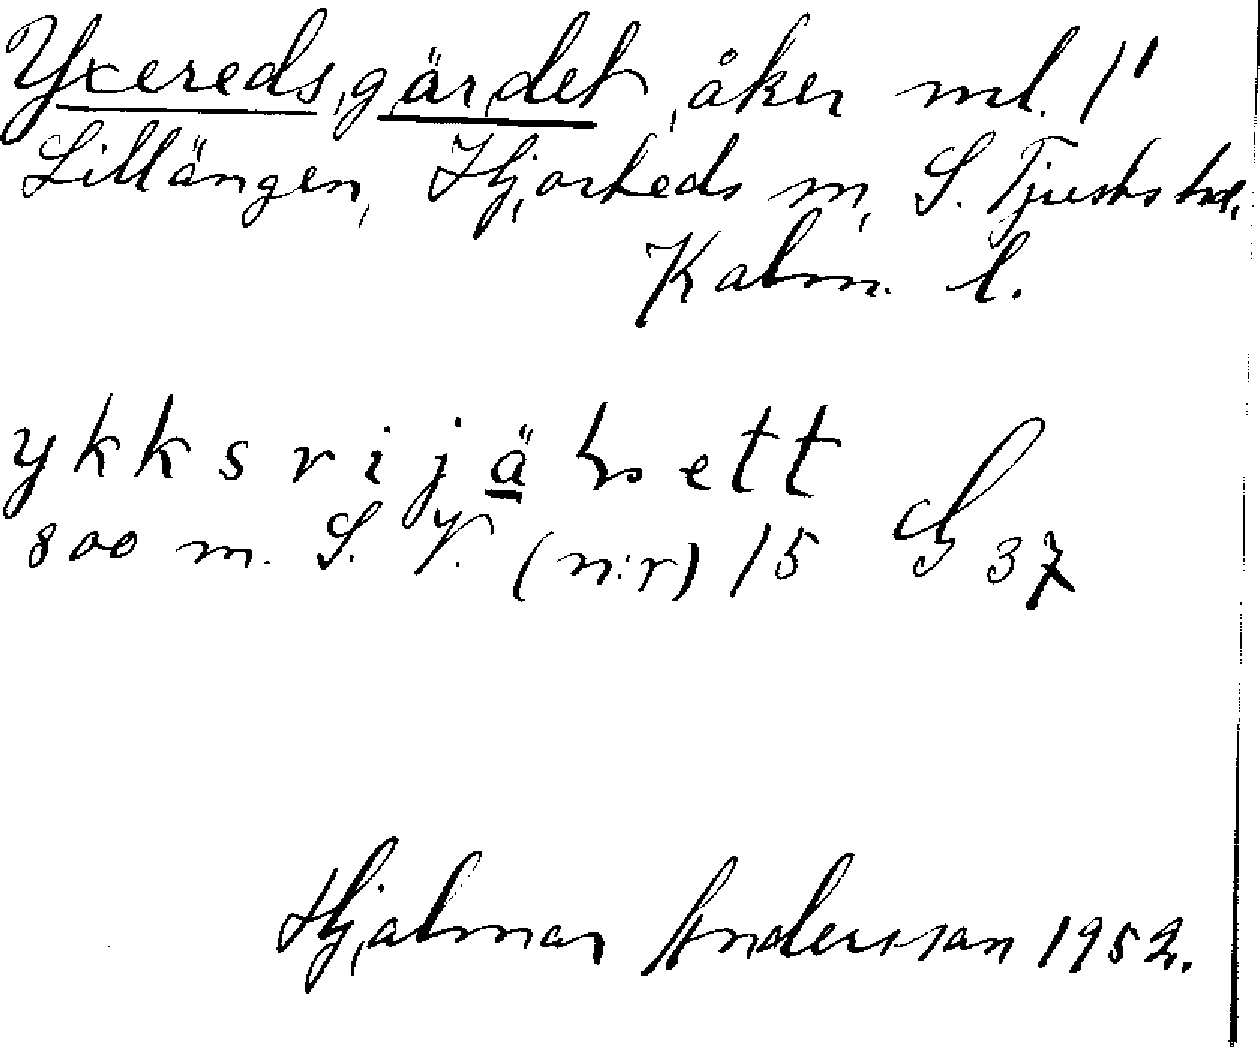 Yxeredsgärdet, åker ml. 1"
Lillängen, Hjorteds sn, S. Tjusts hd,
Kalm. l.
ykksrijähsett
800 m. S. V. (n:r) 15 G 37
Hjalmar Andersson 1952.